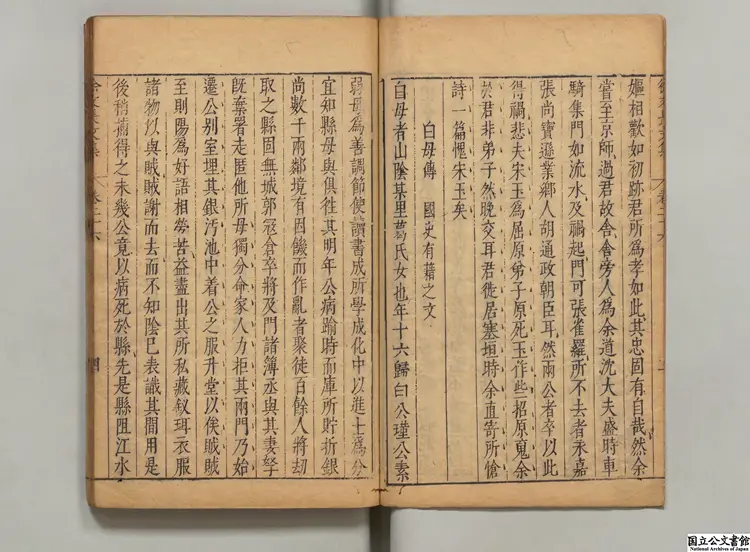 嫗相歡如初跡君所爲孝如此其忠固有自哉然余
嘗至京師過君故舍舍旁人爲余道沈大夫盛時車
騎集門如流水及禍起門可張雀羅所不去者永嘉
張尚寶遜業鄉人胡通政朝臣耳然兩公者卒以此
得禍悲夫宋玉爲屈原弟子原死玉作些一招原䰟余
於君非弟子然晚交耳君徙居塞垣時余直寄所愴
詩一篇愧宋玉矣
白母傳 國史有藉之文
白母者山陰某里葛氏女也年十六歸白公瑾公素
弱母爲善調節使讀書成所學成化中以進士爲分
宜知縣母與俱徃其明年公病踰時而庫所貯折銀
尚數千兩鄰境有因饑而作亂者聚徒百餘人將劫
取之縣固無城郭寇倉卒將及門諸簿丞與其妻孥
旣棄署走匿他所母獨分命家人力拒其兩門乃始
遷公别室埋其銀汚池中着公之服升堂以俟賊賊
至則陽爲好語相勞苦益盡出其所私藏釵珥衣服
諸物以與賊賊謝而去而不知陰巳表識其間用是
後稍捕得之未幾公竟以病死於縣先是縣阻江水
国立公文書館
National Archives of Japan